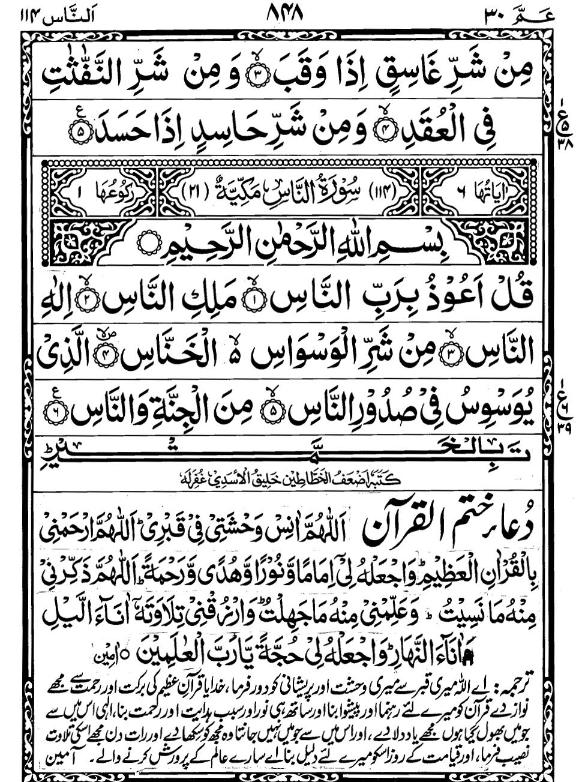 عَمَّ ٣٠ ٨٤٨ اَلنَّاس ١١٤
مِنْ شَرِّ غَاسِقٍ اِذَا وَقَبَ ۙ﴿٣﴾ وَ مِنْ شَرِّ النَّفّٰثٰتِ
فِی الْعُقَدِ ۙ﴿٤﴾ وَ مِنْ شَرِّ حَاسِدٍ اِذَا حَسَدَ ﴿٥﴾
ع ٥ ٣٨
اٰیَاتُهَا ٦ ﴿١١٤﴾ سُوْرَةُ النَّاسِ مَكِّیَّةٌ ﴿٢١﴾ رُكُوْعُهَا ١
بِسْمِ اللهِ الرَّحْمٰنِ الرَّحِیْمِ
قُلْ اَعُوْذُ بِرَبِّ النَّاسِ ۙ﴿١﴾ مَلِكِ النَّاسِ ۙ﴿٢﴾ اِلٰهِ
النَّاسِ ۙ﴿٣﴾ مِنْ شَرِّ الْوَسْوَاسِ ۙ الْخَنَّاسِ ﴿٤﴾ الَّذِیْ
یُوَسْوِسُ فِیْ صُدُوْرِ النَّاسِ ۙ﴿٥﴾ مِنَ الْجِنَّةِ وَ النَّاسِ ﴿٦﴾
ع ٦ ٣٩
تَمَّتْ بِالْخَیْر
كَتَبَهٗ اَضْعَفُ الْخَطَّاطِیْن خَلِیْقُ الْاَسْدِیْ غُفِرَلَهٗ
دُعَاءِ ختم القرآن اَللّٰهُمَّ اٰنِسْ وَحْشَتِیْ فِیْ قَبْرِیْ اَللّٰهُمَّ ارْحَمْنِیْ
بِالْقُرْاٰنِ الْعَظِیْمِ وَاجْعَلْهُ لِیْۤ اِمَامًا وَّنُوْرًا وَّهُدًی وَّرَحْمَةً اَللّٰهُمَّ ذَكِّرْنِیْ
مِنْهُ مَا نَسِیْتُ وَعَلِّمْنِیْ مِنْهُ مَا جَهِلْتُ وَارْزُقْنِیْ تِلَاوَتَهٗۤ اٰنَآءَ الَّیْلِ
وَاٰنَآءَ النَّهَارِ وَاجْعَلْهُ لِیْ حُجَّةً یَّا رَبَّ الْعٰلَمِیْنَ ○ اٰمین
ترجمہ: اے اللہ میری قبر سے میری وحشت اور پریشانی کو دور فرما، خدایا قرآن عظیم کی برکت اور رحمت سے مجھے
نواز دے قرآن کو میرے لئے رہنما اور پیشوا بنا اور ساتھ ہی نور اور سبب ہدایت اور رحمت بنا، الٰہی اس میں سے
جو میں بھول گیا ہوں مجھے یاد دلا دے، اور اس میں سے جو میں نہیں جانتا وہ مجھ کو سکھا دے اور رات دن مجھے اسکی تلاوت
نصیب فرما، اور قیامت کے روز اسکو میرے لئے دلیل بنا اے سارے عالم کے پرورش کرنے والے۔ آمین